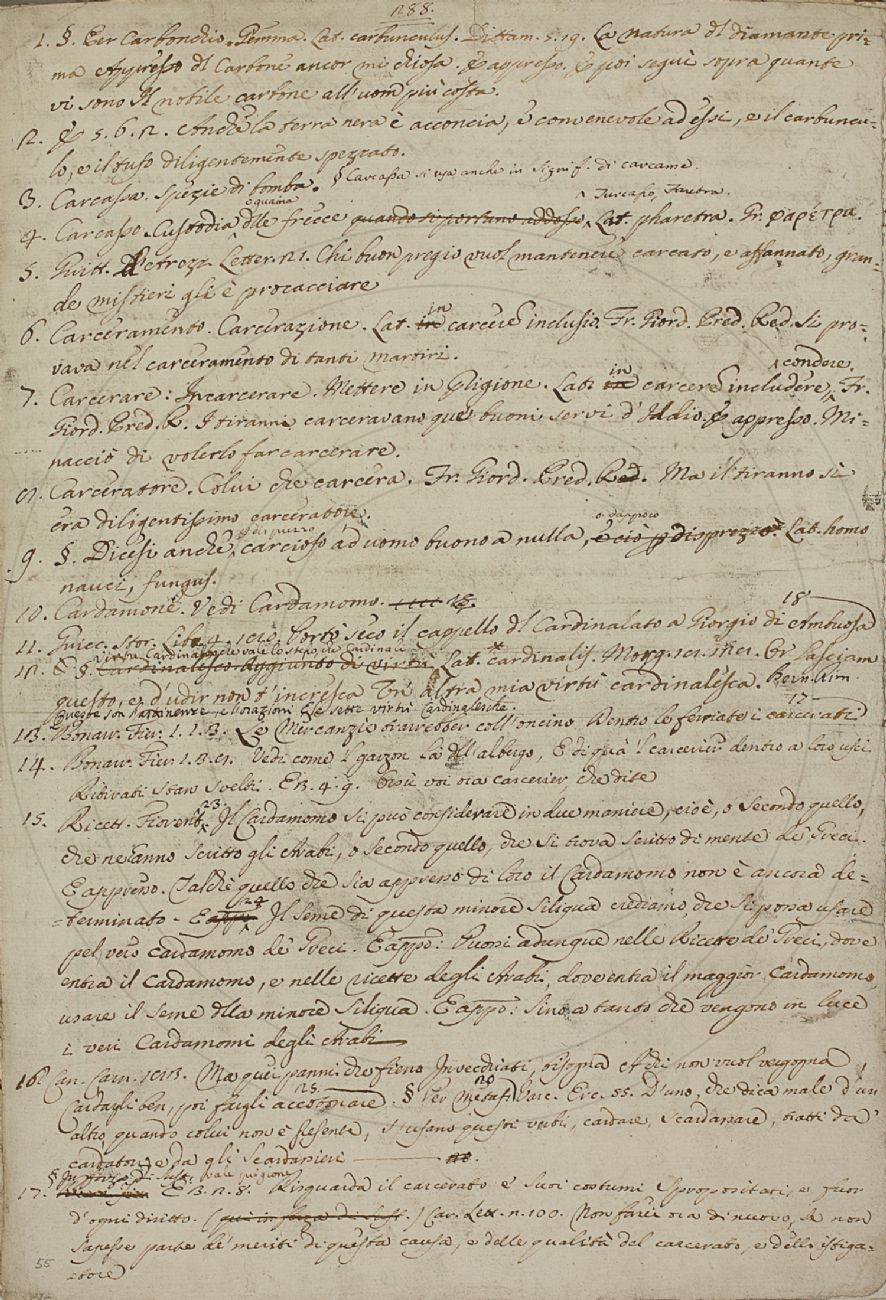 288.
1. §. Per Carbonchio. Gemma. Lat. carbunculus. Dittam. 5. 19. La natura dl diamante pri=
ma Appresso dl Carbone ancor mi chiosa. E appresso. E poi seguì sopra quante
vi sono Il nobile carbone all'uom più costa.
2. E 5. 6. 2. Anche la terra nera è acconcia, e convenevole ad essi, e il carbuncu=
lo, e il tufo diligentemente spezzato.
3. Carcassa. Spezie di bomba. § Carcassa si usa anche in signif. di carcame.
Turcasso, Faretra.
o guaina
4. Carcasso. Custodia dlle frecce quando si portano addosso, Lat. pharetra. Gr. φαρέτρα.
5. Guitt. Letter. 21. Chi buon pregio vuol mantenere carcato, e affannato, gran=
de mistieri gli è procacciare
in
6. Carceramento. Carcerazione. Lat. in carcere inclusio. Fr. Giord. Pred. Red. Si pro=
vava nel carceramento di tanti martiri.
in condere.
7. Carcerare: Incarcerare. Mettere in prigione. Lat. carcere includere, Fr.
Giord. Pred. R. I tiranni carceravano que' buoni servi d'Iddio. E appresso. Mi=
nacciò di volerlo far carcerare.
8. Carceratore. Colui che carcera. Fr. Giord. Pred. Red. Ma il tiranno si
era diligentissimo carceratore.
o dappoco
9. §. Dicesi anche carcioffo ad uomo buono a nulla, e ciò p disprezzo. Lat. homo
nauci, fungus.
10. Cardamone. Vedi Cardamomo.
18
11. Guicc. Stor. Lib. 4. Portò seco il cappello dl Cardinalato a Giorgio di Ambuosa
Virtù Cardinale vale lo stesso, che Cardinali
12. E §. Cardinalesco. Aggiunto di virtù. Lat. cardinalis. Morg. Or lasciam
questo, e d'udir non t'incresca Tre altra mia virtù cardinalesca. Bernin.
Queste son l'attinenze, e l'orazioni E le sette virtù Cardinalesche.
17
13. Bonar. Fier. 1. 1. 3. Le Mercanzie trarrebber coll'oncino Dentro le ferriate i carcerati
14. Bonar. Fier. 1. 3. 9. Vedi come 'l garzon là dll'albergo, E di quà 'l carcerier dentro a loro usci
Ritirati stan svelti. E 3. 4. 9. Orsù voi ora carcerier, che dite
23
15. Ricett. Fiorent. Il Cardamomo si può considerare in due maniere, cioè, o secondo quello,
che ne anno scritto gli Arabi, o secondo quello, che si trova scritto di mente de' Greci.
E appresso. Talchè quello che sia appresso di loro il Cardamomo non è ancora de=
24
=terminato. E Il seme di questa minore siliqua crediamo, che si possa usare
pel vero cardamomo de' Greci. E appo: Puossi adunque nelle Ricette de' Greci, dove
entra il Cardamomo, e nelle ricette degli Arabi, dove entra il maggior Cardamomo,
usare il seme dlla minore siliqua. E appo: Sino a tanto che vengono in luce
i veri Cardamomi degli Arabi
16. Can. Carn. 103. Ma quei panni che fieno Invecchiati, bisogna A chi non vuol vergogna
25 20
Cardagli ben, poi fargli accotonare. § Per Metaf. Varc. Erc. 55. D'uno, che dica male d'un
altro quando colui non è presente, s'usano questi verbi, cardare, scardassare, tratti da'
cardatori, e da gli Scardassieri
§ In forza di sust. vale prigione
17. E 3. 2. 8. Risguarda il carcerato e' suoi costumi spropositati, e fuor
d'ogni diritto. (qui in forza di sust.) Car. Lett. n. 100. Non farei ora di nuovo, se non
sapesse parte de' meriti di questa causa, e delle qualità del carcerato, e dell'istiga=
tore
55